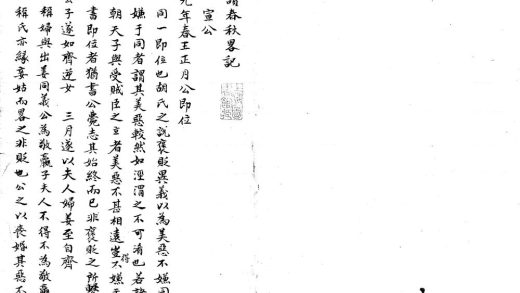 讀春秋畧記
宣公
元年春王正月公即位
同一即位也胡氏之説褒貶異義以為美惡不嫌同
嫌于同者謂其美惡較然如涇渭之不可淆也若諸
朝天子與受賊臣之立者美惡不甚相遠豈得不嫌于
書即位者猶書公薨志其始終而已非褒貶之所繫
公子遂如齊逆女 三月遂以夫人婦姜至自齊
稱婦與出姜同義公為敬嬴子夫人不得不為敬嬴
稱氏亦緣妾姑而畧之非貶也公之以喪婚其惡不